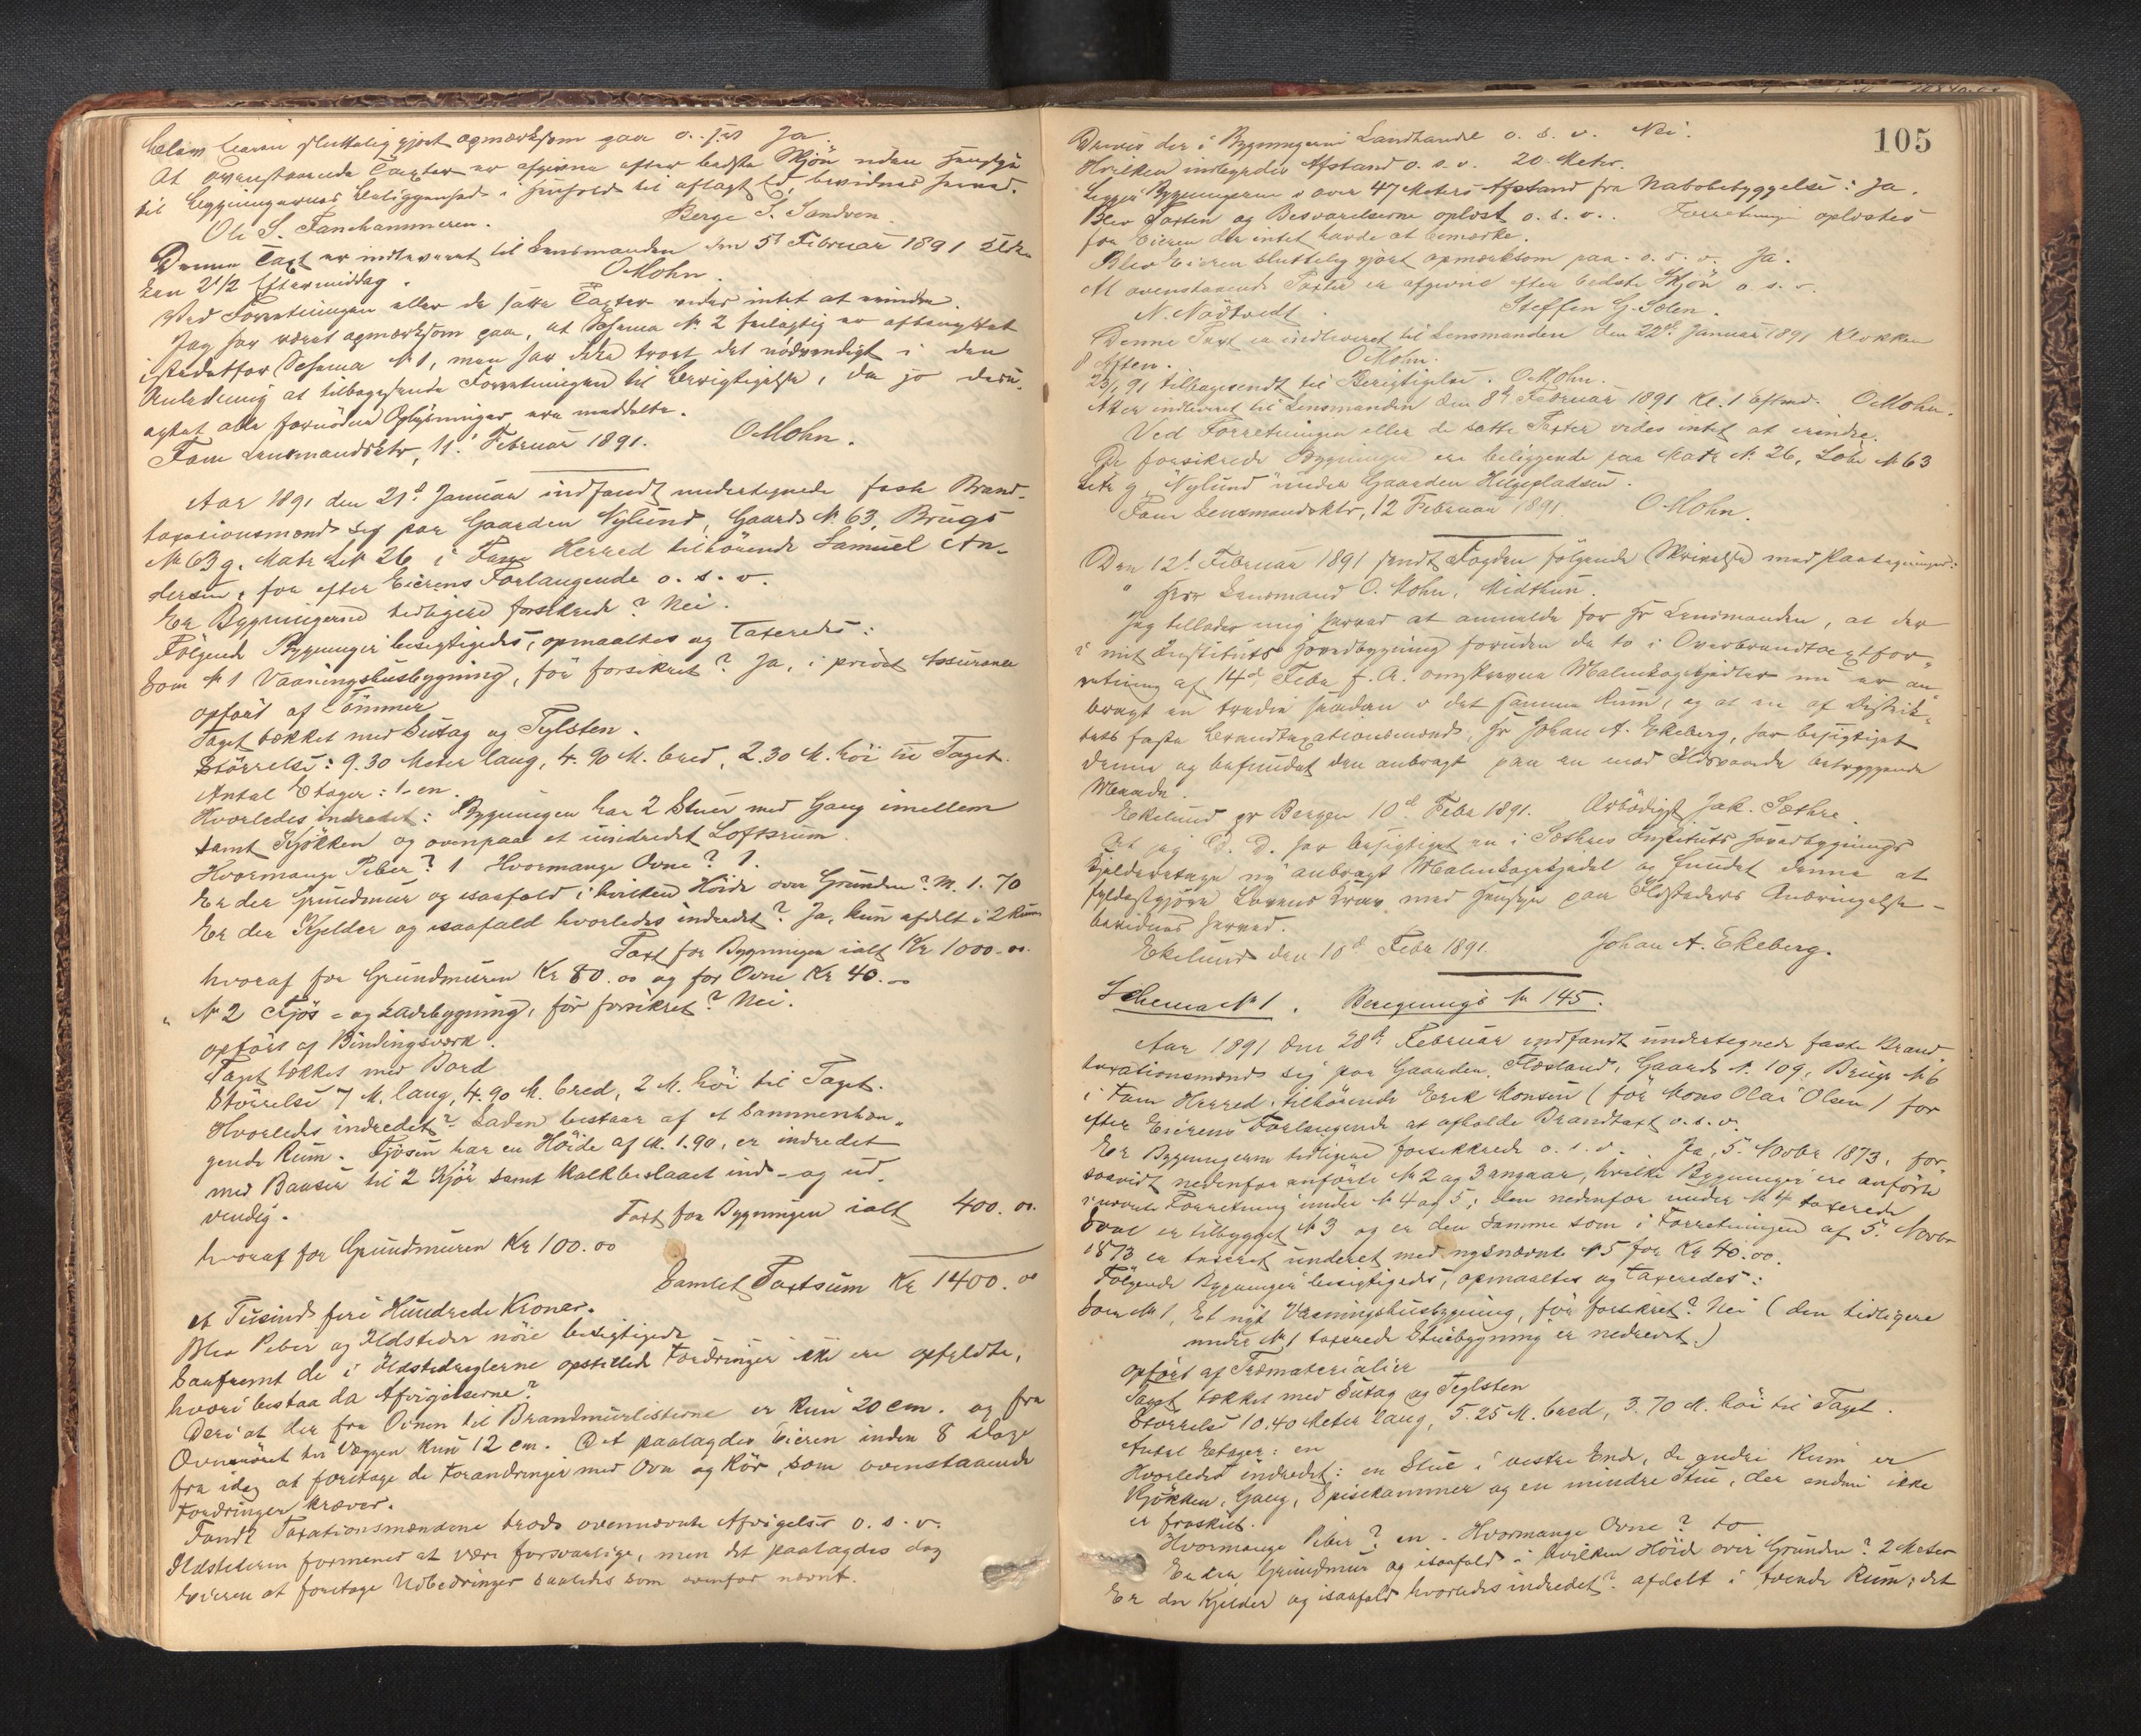 Blev Eieren sluttelig gjort opmærksom paa o. s. v. Ja.
At ovenstaaende Taxter er afgivne efter bedste Skjön uden Hensyn
til Bygningernes Beliggenhed i Henhold til aflagt Ed, bevidnes herved.
Ole S. Fanehammeren. Berge S. Sandven.
Denne Taxt er indleveret til Lensmanden den 5t Februar 1891 Klok-
ken 2 1/2 Eftermiddag. OMohn.
Ved Forretningen eller de satte Taxter vides intet at erindre.
Jeg har været opmærksom paa, at Schema No 2 feilagtig er afbenyttet
istedetfor Schema No 1, men har ikke troet det nödvendigt i den
Anledning at tilbagesende Forretningen til Berigtigelse, da jo desu-
agtet alle fornödne Oplysninger ere meddelte.
Fane Lensmandsktr, 11. Februar 1891. OMohn.
Aar 1891 den 21d Januar indfandt undertegnede faste Brand-
taxasionsmænd sig paa Gaarden Nylund, Gaards No 63, Brugs
No 63 g. Matr Lit 26 i Fane Herred tilhörende Samuel An-
dersen, for efter Eierens Forlangende o. s. v.
Er Bygningerne tidligere forsikrede? Nei.
Fölgende Bygninger besigtigedes, opmaaltes og taxeredes:
Som No 1 Vaaningshusbygning, för forsikret? Ja, i privat Assurance
opfört af Tömmer
Taget tækket med Sutag og Teglsten.
Störrelse: 9.30 Meter lang, 4.90 M. bred, 2.30 M. höi til Taget.
Antal Etager: 1- en.
Hvorledes indredet: Bygningen har 2 Stuer med Gang imellem
samt Kjökken og ovenpaa et uindredet Loftsrum.
Hvormange Piber? 1 Hvormange Ovne? 1.
Er der Grundmur og isaafald i hvilken Höide over Grunden? M. 1.70
Er der Kjelder og isaafald hvorledes indredet? Ja, kun afdelt i 2 Rum
Taxt for Bygningen ialt Kr 1000.00.
hvoraf for Grundmuren Kr 80.00 og for Ovne Kr 40.00
" No 2 Fjös- og Ladebygning, för forsikret? Nei.
opfört af Bindingsværk.
Taget tækket med Bord
Störrelse 7 M. lang, 4.90 M. bred, 2 M. höi til Taget.
Hvorledes indredet? Laden bestaar af et sammenhæn-
gende Rum. Fjösen har en Höide af M. 1.90, er indredet
med Baaser til 2 Kjör samt kalkbeslaaet ind- og ud-
vendig. Taxt for Bygningen ialt 400.00.
hvoraf for Grundmuren Kr 100.00
Samlet Taxtsum Kr 1400.00
et Tusind fire Hundrede Kroner.
Blev Piber og Ildsteder nöie besigtigede
Saafremt de i Ildstedreglerne opstillede Fordringer ikke ere opfyldte,
hvori bestaa da Afvigelserne?
Deri at der fra Ovnen til Brandmurlisterne er kun 20 cm. og fra
Ovnsröret til Væggen kun 12 cm. Det paalagdes Eieren inden 8 Dage
fra idag at foretage de Forandringer med Ovn og Rör, som ovenstaaende
Fordringer kræver.
Fandt Taxationsmændene trods ovennævnte Afvigelser o. s. v.
Ildstederne formenes at være forsvarlige, men det paalagdes dog
Eieren at foretage Udbedringer saaledes som ovenfor nævnt.
105
Drives der i Bygningerne Landhandel o. s. v. Nei.
Hvilken indbyrdes Afstand o. s. v. 20 Meter.
Ligger Bygningerne i over 47 Meters Afstand fra Nabobebyggelse: Ja.
Blev Taxten og Besvarelserne oplæst o. s. v. Forretningen oplæstes
for Eieren der intet havde at bemærke.
Blev Eieren sluttelig gjort opmærksom paa o. s. v. Ja.
At ovenstaaende Taxter er afgivne efter bedste Skjön o. s. v.
N. Nödtvedt. Steffen G. Solen.
Denne Taxt er indleveret til Lensmanden den 22de Januar 1891 Klokken
8 Aften. OMohn.
23/1 91 tilbagesendt til Berigtigelse. OMohn.
Atter indleveret til Lensmanden den 8d Februar 1891 Kl. 1 Eftmd. OMohn.
Ved Forretningen eller de satte Taxter vides intet at erindre.
De forsikrede Bygninger ere beliggende paa Matr No 26, Löbe No 63
Litr g "Nylund" under Gaarden Hilgepladsen.
Fane Lensmandsktr, 12 Februar 1891. OMohn.
Den 12t Februar 1891 sendt Fogden fölgende Skrivelse med Paategninger:
" Herr Lensmand O. Mohn, Midthun.
Jeg tillader mig herved at anmelde for Hr Lensmanden, at der
i mit Instituts Hovedbygning foruden de to i Overbrandtaxtfor-
retning af 14d Febr f. A. omskrevne Madkogekjedler nu er an-
bragt en tredie saadan i det samme Rum, og at en af Distrik-
tets faste Brandtaxationsmænd, Hr Johan A. Ekeberg, har besigtiget
denne og befundet den anbragt paa en mod Ildsvaade betryggende
Maade.
Ekelund pr Bergen 10d Febr 1891. Ærbödigst Jak. Sæthre.
At jeg D. D. har besigtiget en i Sæthres Instituts Hovedbygnings
Kjelderetage ny anbragt Madkogekjedel og fundet denne at
fyldestgjöre Lovens Krav med Hensyn paa Ildsteders Anbringelse -
bevidnes herved.
Ekelund den 10d Febr 1891. Johan A. Ekeberg.
Schema No 1. Beregnings No 145.
Aar 1891 den 28d Februar indfandt undertegnede faste Brand-
taxationsmænd sig paa Gaarden Flæsland, Gaards No 109, Brugs No 6
i Fane Herred, tilhörende Erik Monsen (för Mons Olai Olsen) for
efter Eierens Forlangende at afholde Brandtaxt o. s. v.
Er Bygningerne tidligere forsikkrede o. s. v. Ja, 5. Novbr 1873, for-
saavidt nedenfor anförte No 2 og 3 angaar, hvilke Bygninger ere anförte
i nævnte Forretning under No 4 og 5; den nedenfor under No 4 taxerede
Sval er tilbygget No 3 og er den samme som i Forretningen af 5. Novbr
1873 er taxeret underet med nysnævnte No 5 for Kr 40.00.
Fölgende Bygninger besigtigedes, opmaaltes og taxeredes:
Som No 1, Et nyt Vaaningshusbygning, för forsikret? Nei (den tidligere
under No 1 taxerede Stuebygning er nedrevet.)
opfört af Træmaterialier
Taget tækket med Sutag og Teglsten
Störrelse 10.40 Meter lang, 5.25 M. bred, 3.70 M. höi til Taget.
Antal Etager: en
Hvorledes indredet: en Stue i vestre Ende, de andre Rum er
Kjökken, Gang, Spisekammer og en mindre Stue, der endnu ikke
er fraskilt.
Hvormange Piber? en. Hvormange Ovne? to
Er der Grundmur og isaafald i hvilken Höide over Grunden? 2 Meter
Er der Kjelder og isaafald hvorledes indredet? afdelt i tvende Rum, det